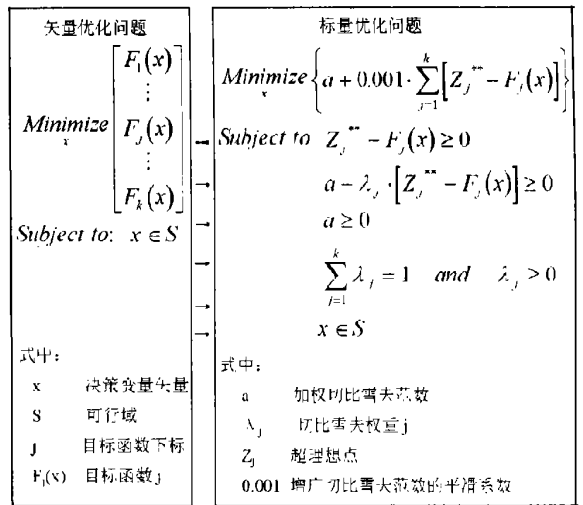 矢量优化问题
Minimize
x
F₁(x)
⋮
F_J(x)
⋮
F_k(x)
Subject to: x ∈ S
式中:
x 决策变量矢量
S 可行域
J 目标函数下标
F_j(x) 目标函数 j
标量优化问题
Minimize {a + 0.001·∑[Z_j** − F_j(x)]}
x
j=1
k
Subject to Z_j** − F_j(x) ≥ 0
a − λ_j·[Z_j** − F_j(x)] ≥ 0
a ≥ 0
∑ λ_j = 1 and λ_j > 0
j=1
k
x ∈ S
式中:
a 加权切比雪夫范数
λ_j 切比雪夫权重 j
Z_j 超理想点
0.001 增广切比雪夫范数的平滑系数